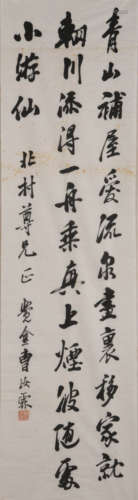 青山補屋愛流泉畫裏移家就
輞川添得一舟乘興上煙波隨處
小游仙
北村尊兄正 覺盦曹汝霖